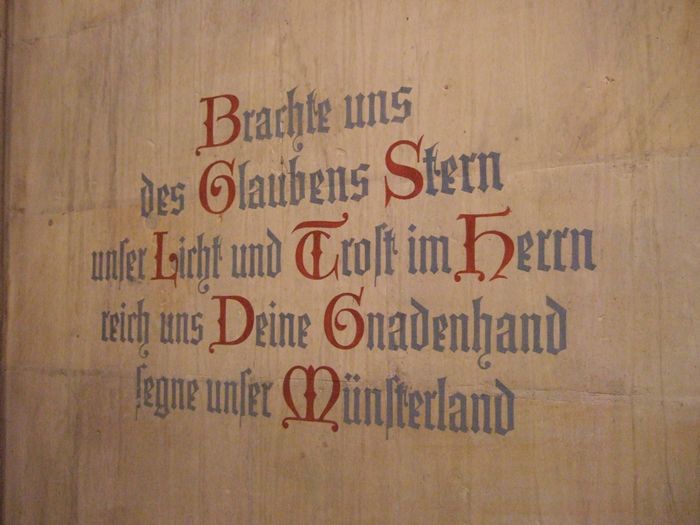 Brachte uns
des Glaubens Stern
unser Licht und Trost im Herrn
reich uns Deine Gnadenhand
segne unser Münsterland